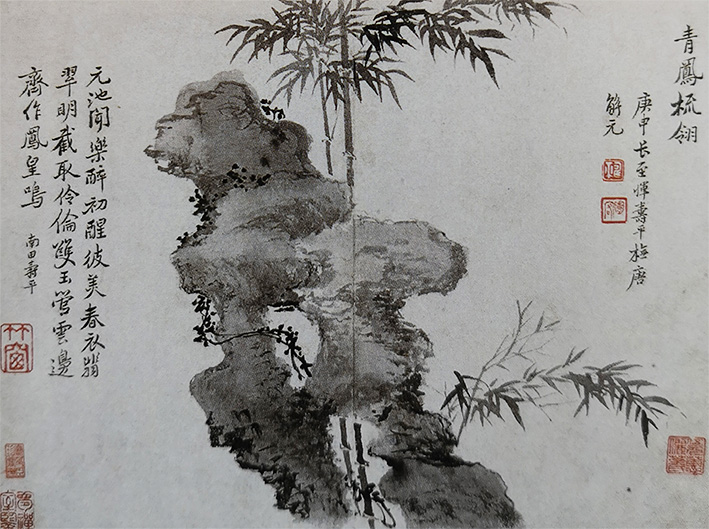 青鳳梳翎
庚申长至惲壽平橅唐
解元
元池聞樂醉初醒彼美春衣翡
翠明截取伶倫雙玉管雲邊
齊作鳳皇鳴
南田壽平
竹窗